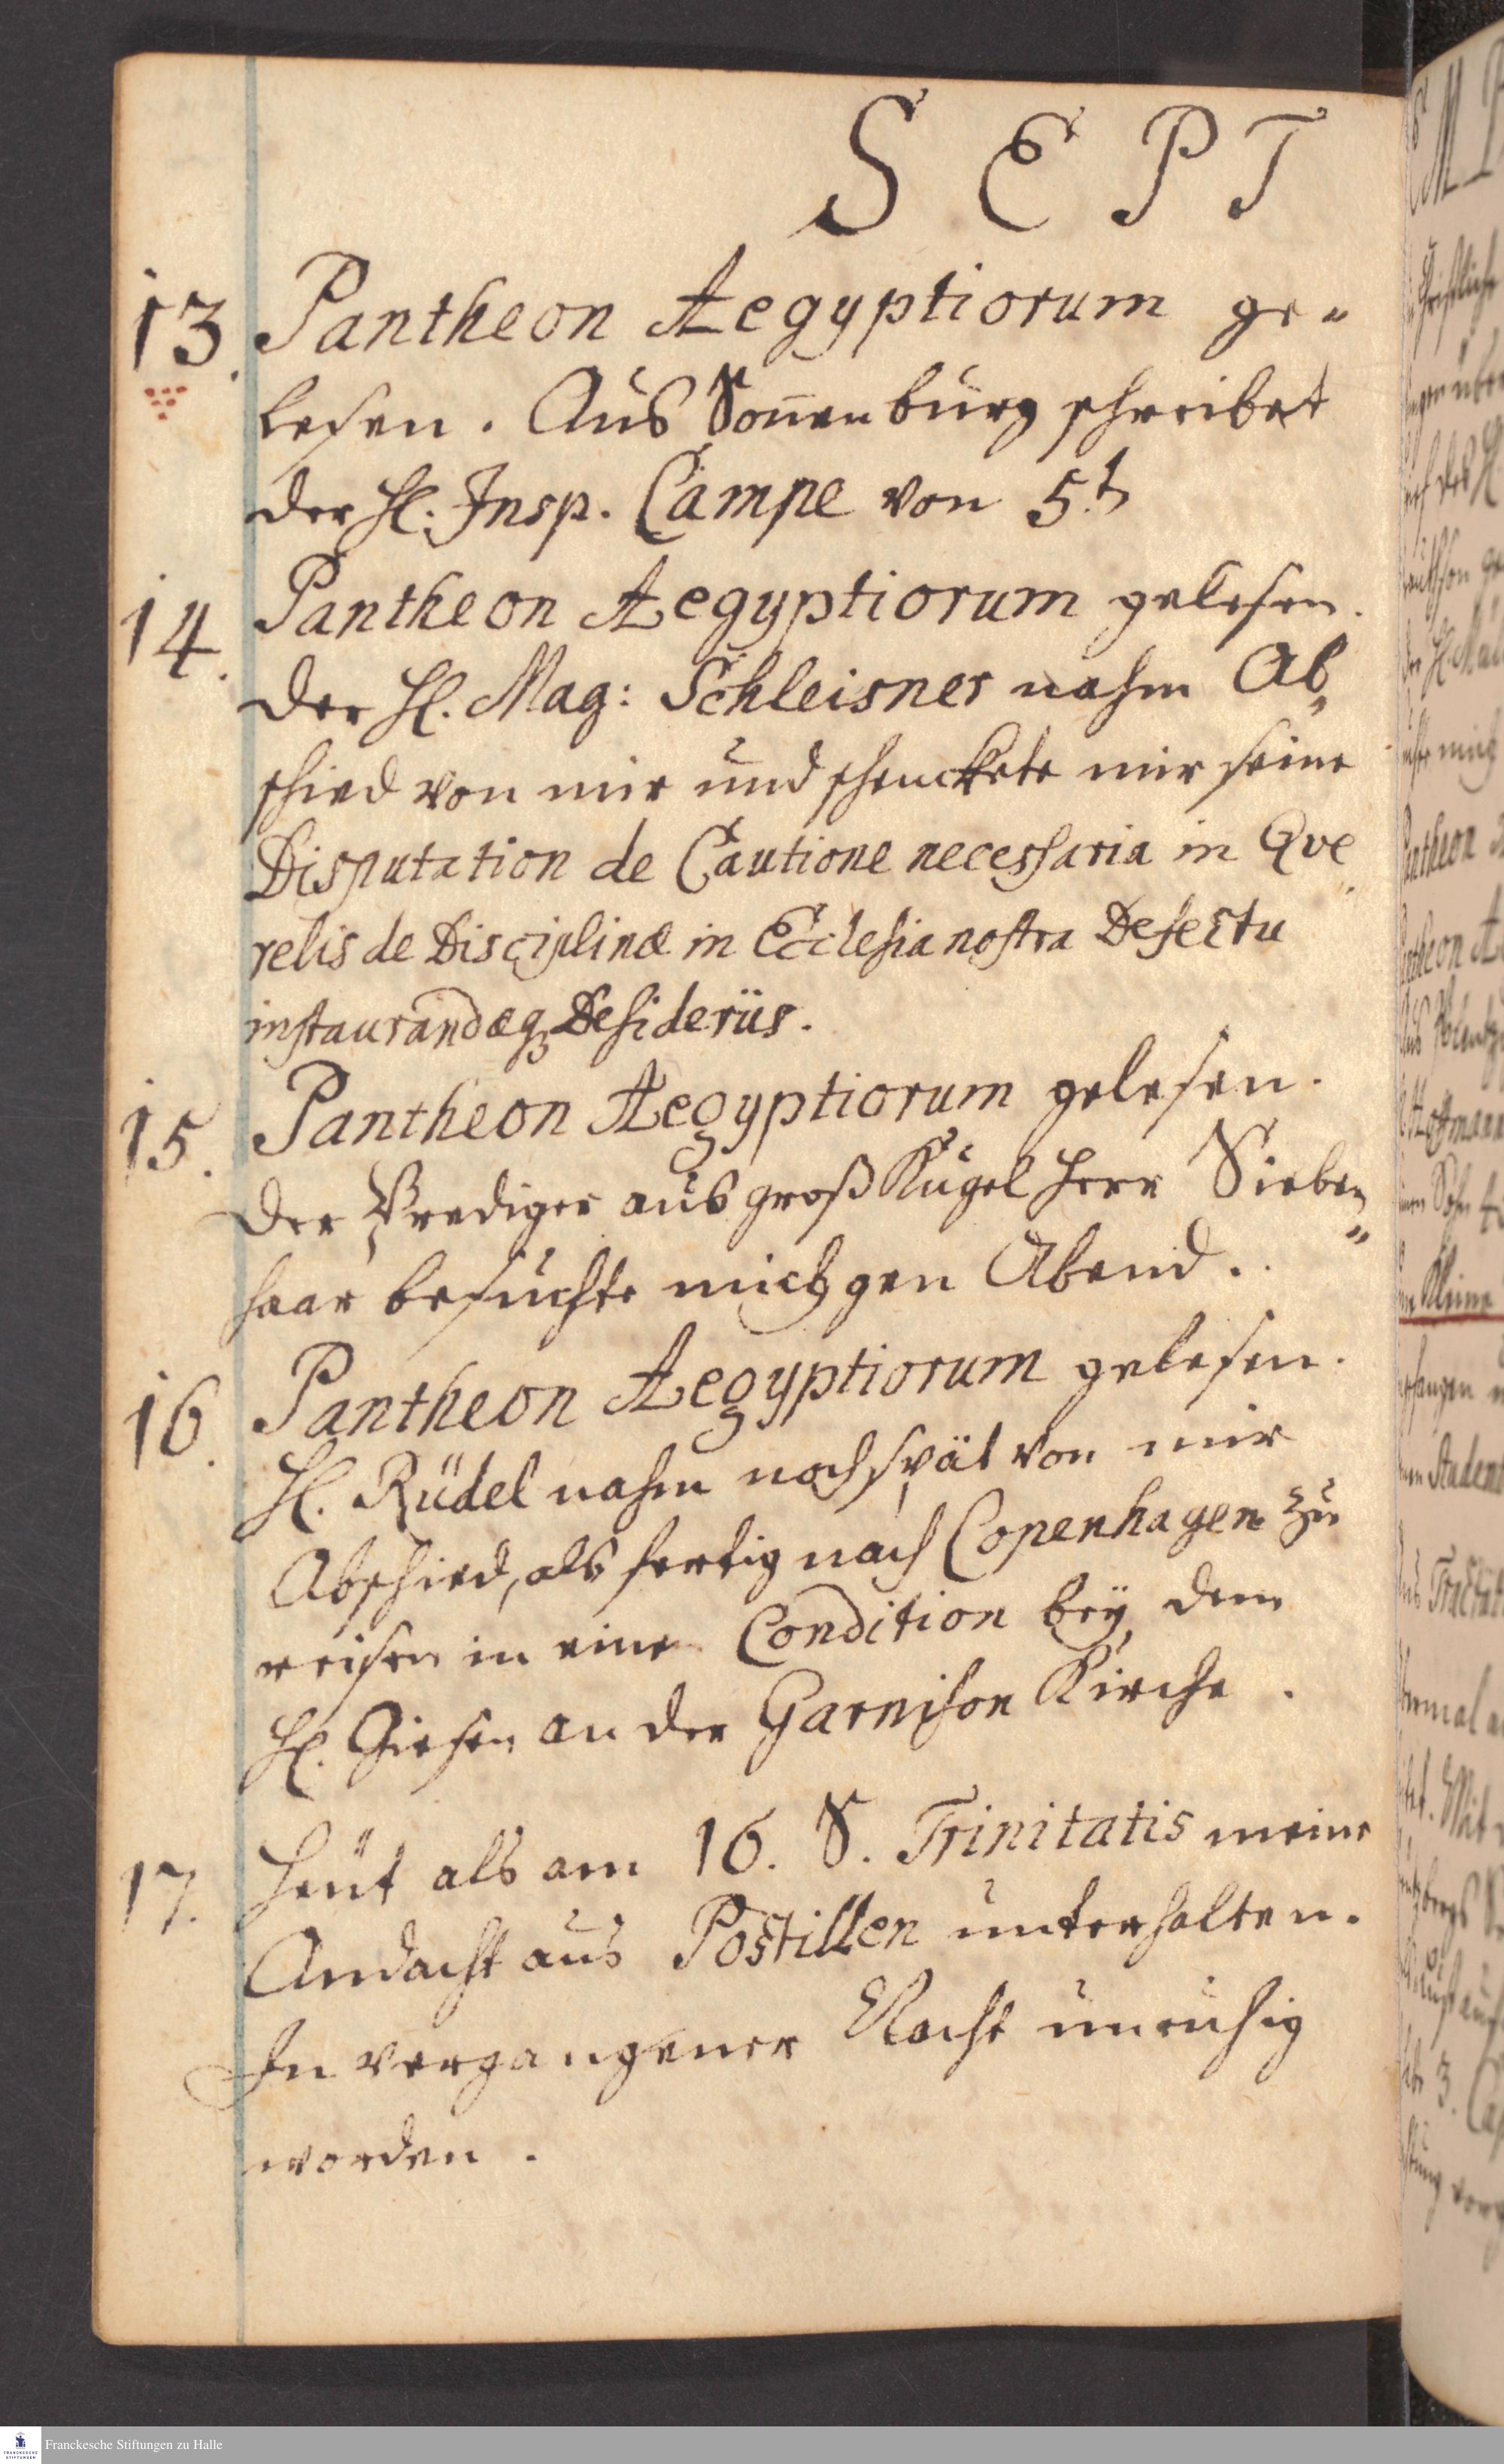 SEPT
13. Pantheon Aegyptiorum ge-
lesen. Aus Sonnenburg schreibet
der H. Insp. Campe von 5.t
14. Pantheon Aegyptiorum gelesen.
der H. Mag: Schleisner nahm Ab-
schied von mir und schenckete mir seine
Disputation de Cautione necessaria in Qve-
relis de Disciplinæ in Ecclesia nostra Defectu
instaurandæq; Desideriis.
15. Pantheon Aegyptiorum gelesen.
Der Prediger aus groß Kugel Herr Sieben-
haar besuchte mich gen Abend.
16. Pantheon Aegyptiorum gelesen.
H. Rüdel nahm noch spät von mir
Abschied, als fertig nach Copenhagen zu
reisen in eine Condition bey dem
H. Giesen an der Garnison Kirche.
17. Heut als am 16. S. Trinitatis meine
Andacht aus Postillen unterhalten.
In vergangener Nacht unruhig
worden.
Franckesche Stiftungen zu Halle